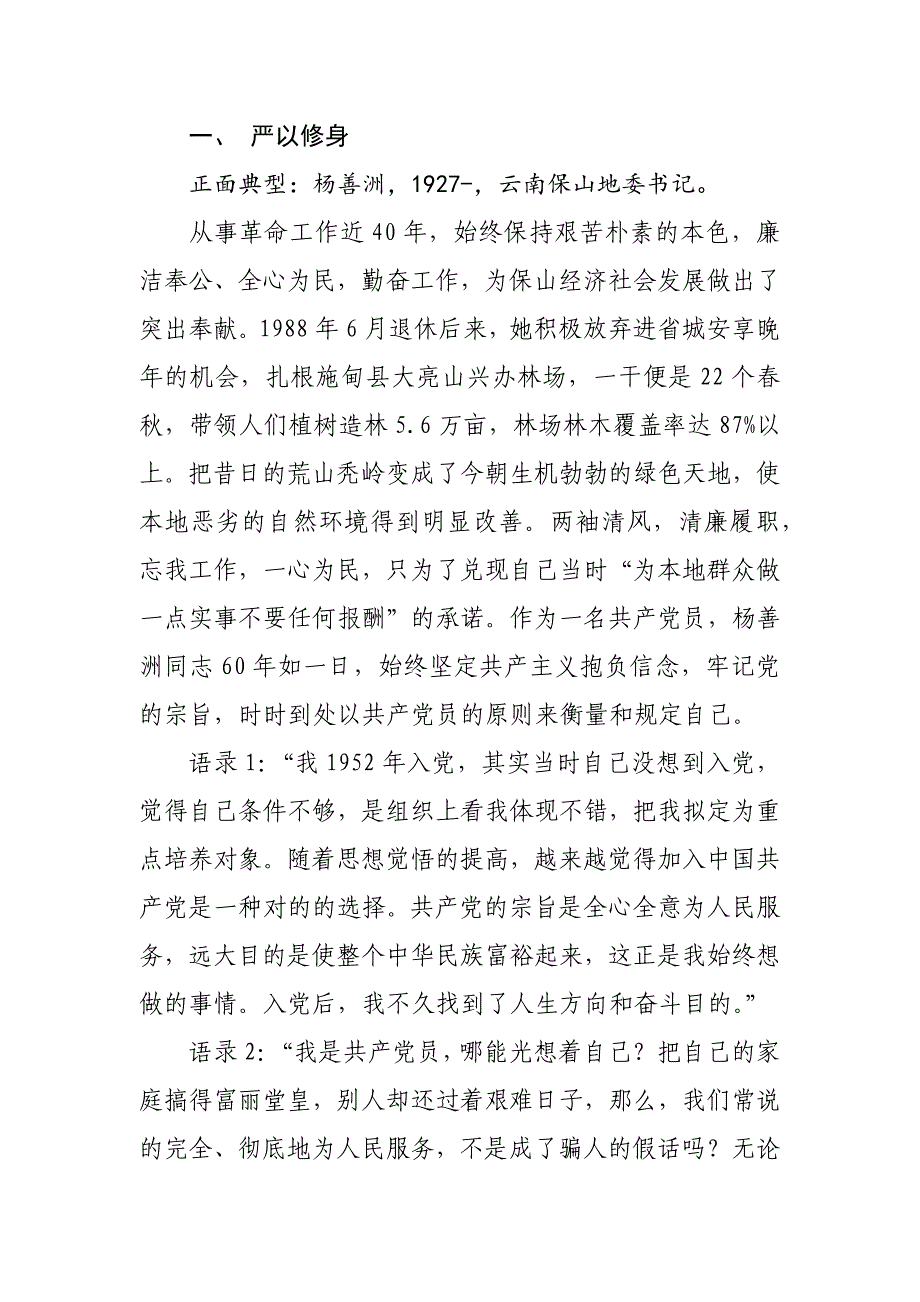 一、 严以修身
正面典型：杨善洲，1927-，云南保山地委书记。
从事革命工作近 40 年，始终保持艰苦朴素的本色，廉
洁奉公、全心为民，勤奋工作，为保山经济社会发展做出了
突出奉献。1988 年 6 月退休后来，她积极放弃进省城安享晚
年的机会，扎根施甸县大亮山兴办林场，一干便是 22 个春
秋，带领人们植树造林 5.6 万亩，林场林木覆盖率达 87%以
上。把昔日的荒山秃岭变成了今朝生机勃勃的绿色天地，使
本地恶劣的自然环境得到明显改善。两袖清风，清廉履职，
忘我工作，一心为民，只为了兑现自己当时“为本地群众做
一点实事不要任何报酬”的承诺。作为一名共产党员，杨善
洲同志 60 年如一日，始终坚定共产主义抱负信念，牢记党
的宗旨，时时到处以共产党员的原则来衡量和规定自己。
语录 1：“我 1952 年入党，其实当时自己没想到入党，
觉得自己条件不够，是组织上看我体现不错，把我拟定为重
点培养对象。随着思想觉悟的提高，越来越觉得加入中国共
产党是一种对的的选择。共产党的宗旨是全心全意为人民服
务，远大目的是使整个中华民族富裕起来，这正是我始终想
做的事情。入党后，我不久找到了人生方向和奋斗目的。”
语录 2：“我是共产党员，哪能光想着自己？把自己的家
庭搞得富丽堂皇，别人却还过着艰难日子，那么，我们常说
的完全、彻底地为人民服务，不是成了骗人的假话吗？无论